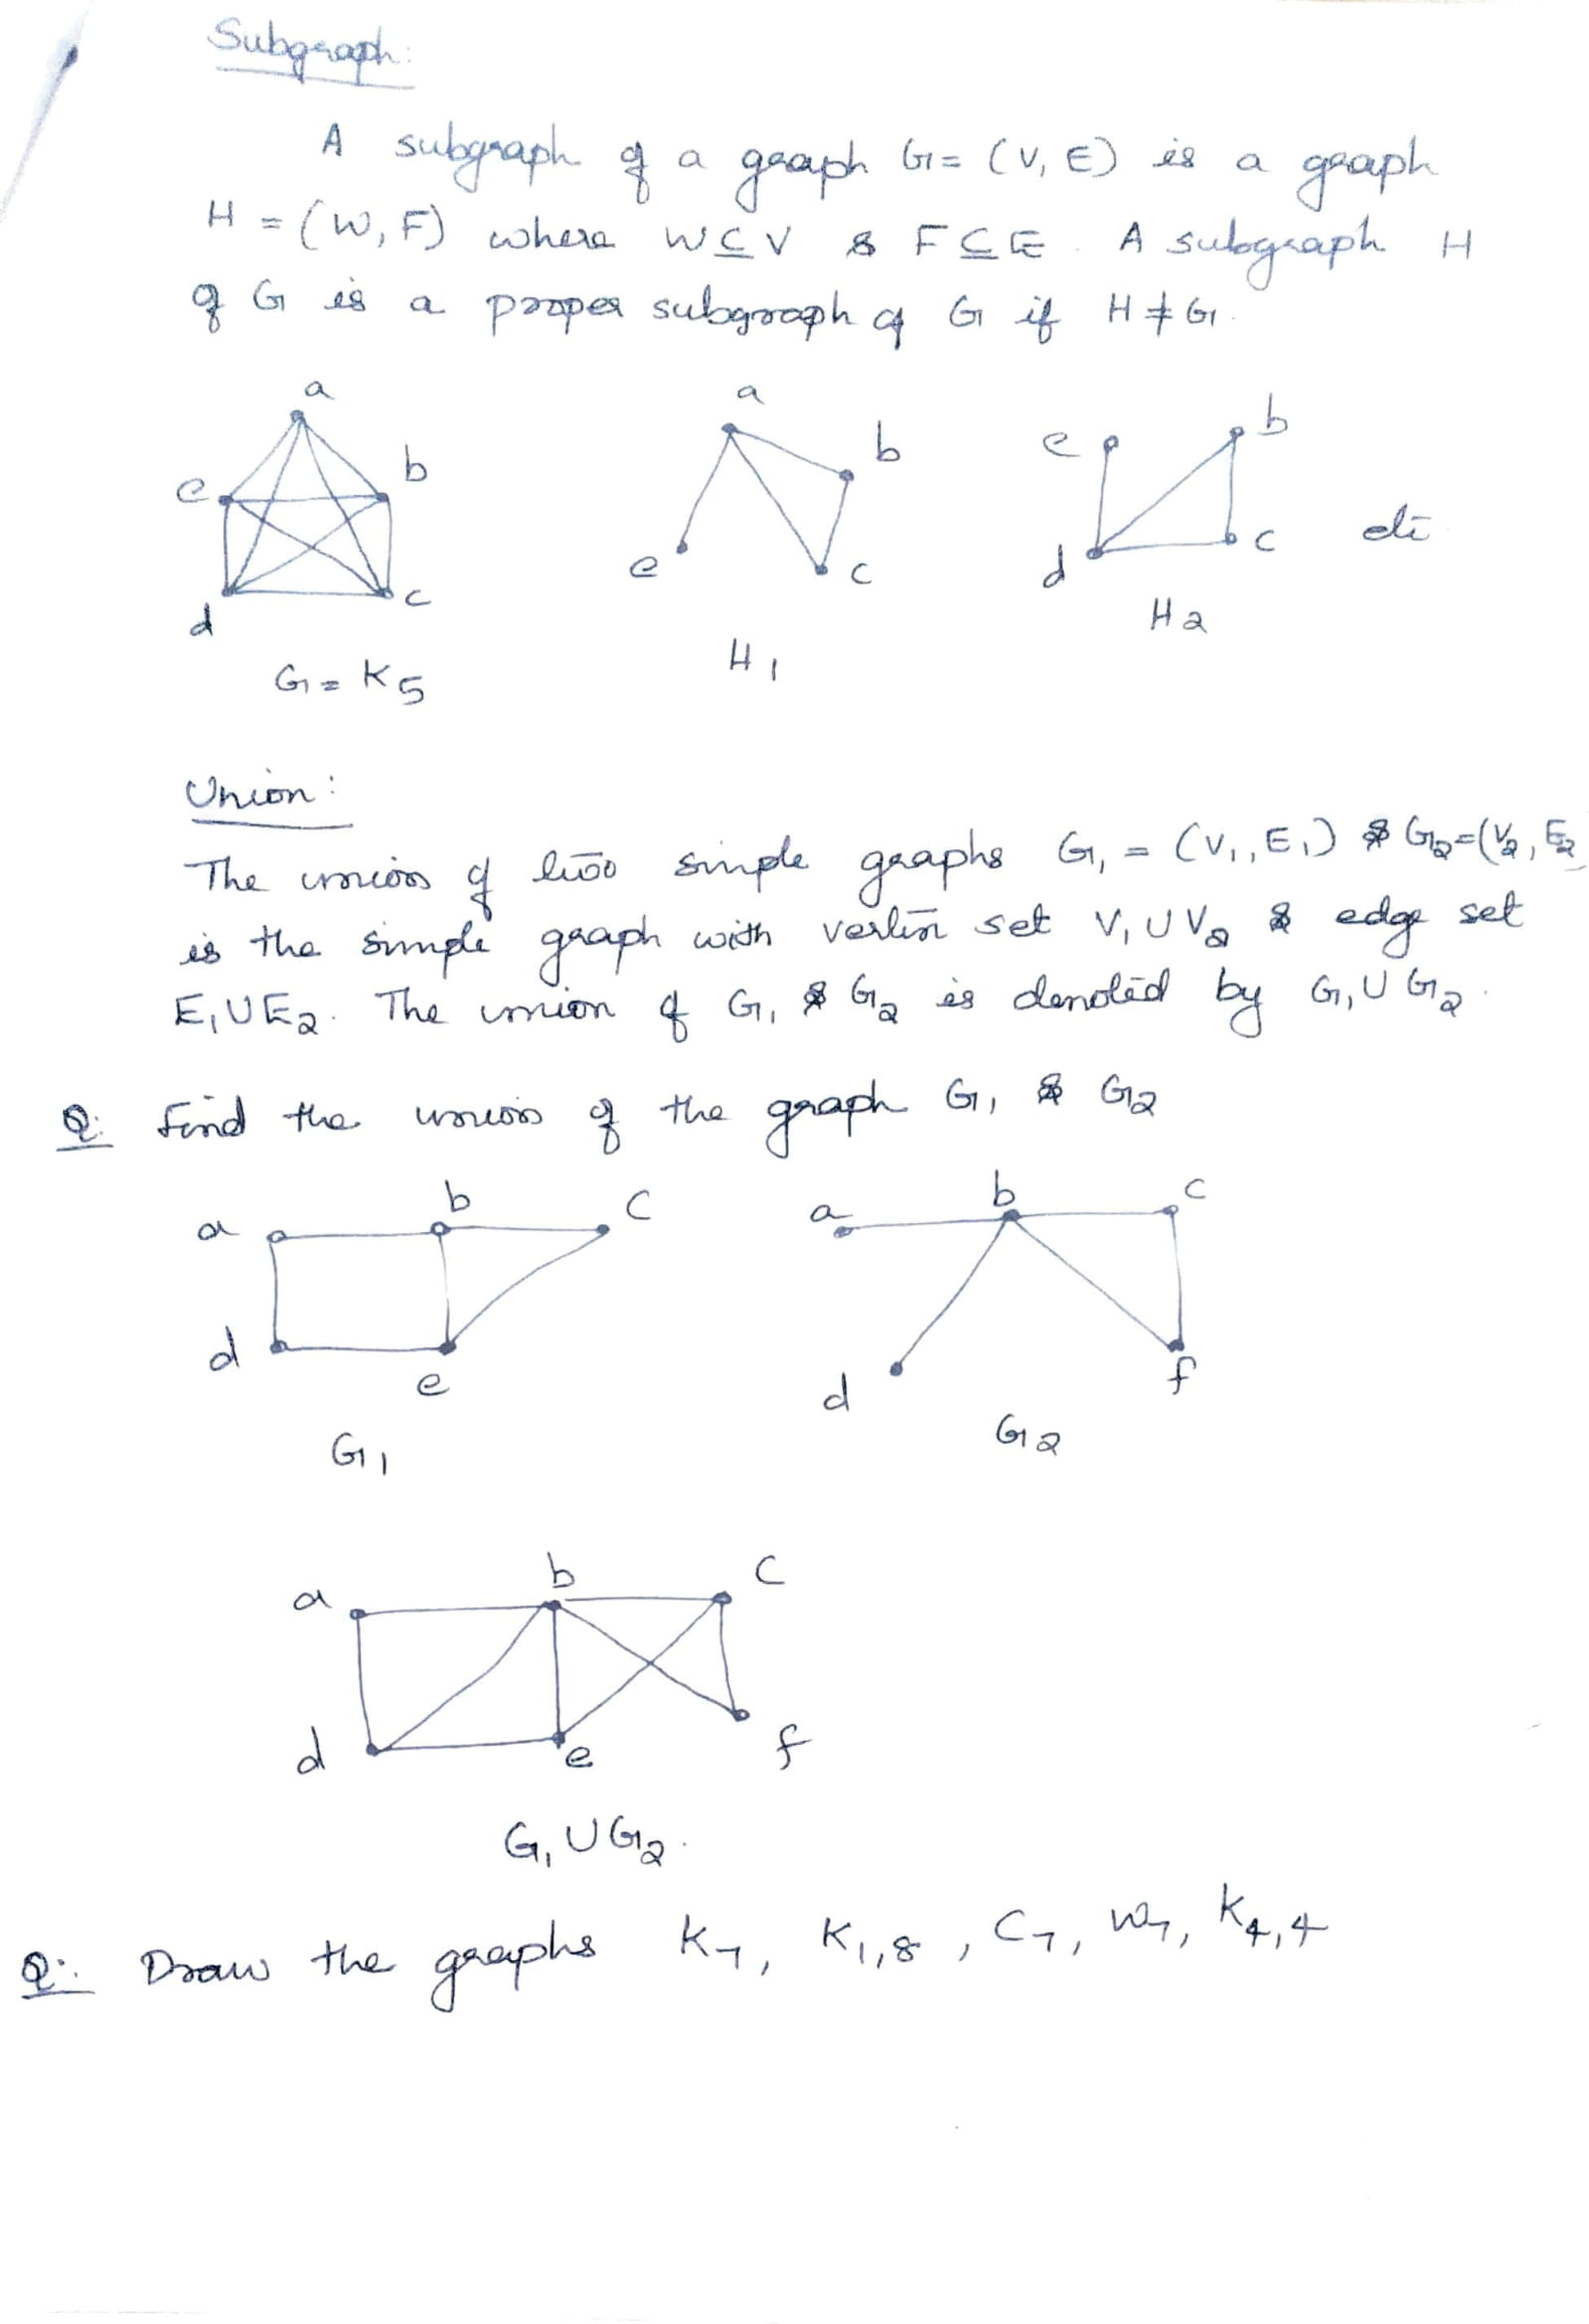 Subgraph:
A subgraph of a graph G = (V, E) is a graph
H = (W, F) where W ⊆ V & F ⊆ E. A subgraph H
of G is a proper subgraph of G if H ≠ G.
a
b
c
d
e
G = K5
a
b
c
e
H1
e
b
d
c
H2
etc
Union:
The union of two simple graphs G1 = (V1, E1) & G2 = (V2, E2
is the simple graph with vertex set V1 ∪ V2 & edge set
E1 ∪ E2. The union of G1 & G2 is denoted by G1 ∪ G2.
Q: Find the union of the graph G1 & G2
a b c
d e
G1
a b c
d f
G2
a b c
d e f
G1 ∪ G2.
Q: Draw the graphs K7, K1,8, C7, W7, K4,4